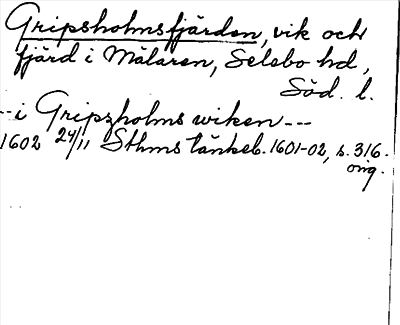 Gripsholmsfjärden, vik och
fjärd i Mälaren, Selebo hd,
Söd. l.
--i Gripzholms wiken---
1602 24/11 Sthms tänkeb. 1601-02, s. 316.
orig.